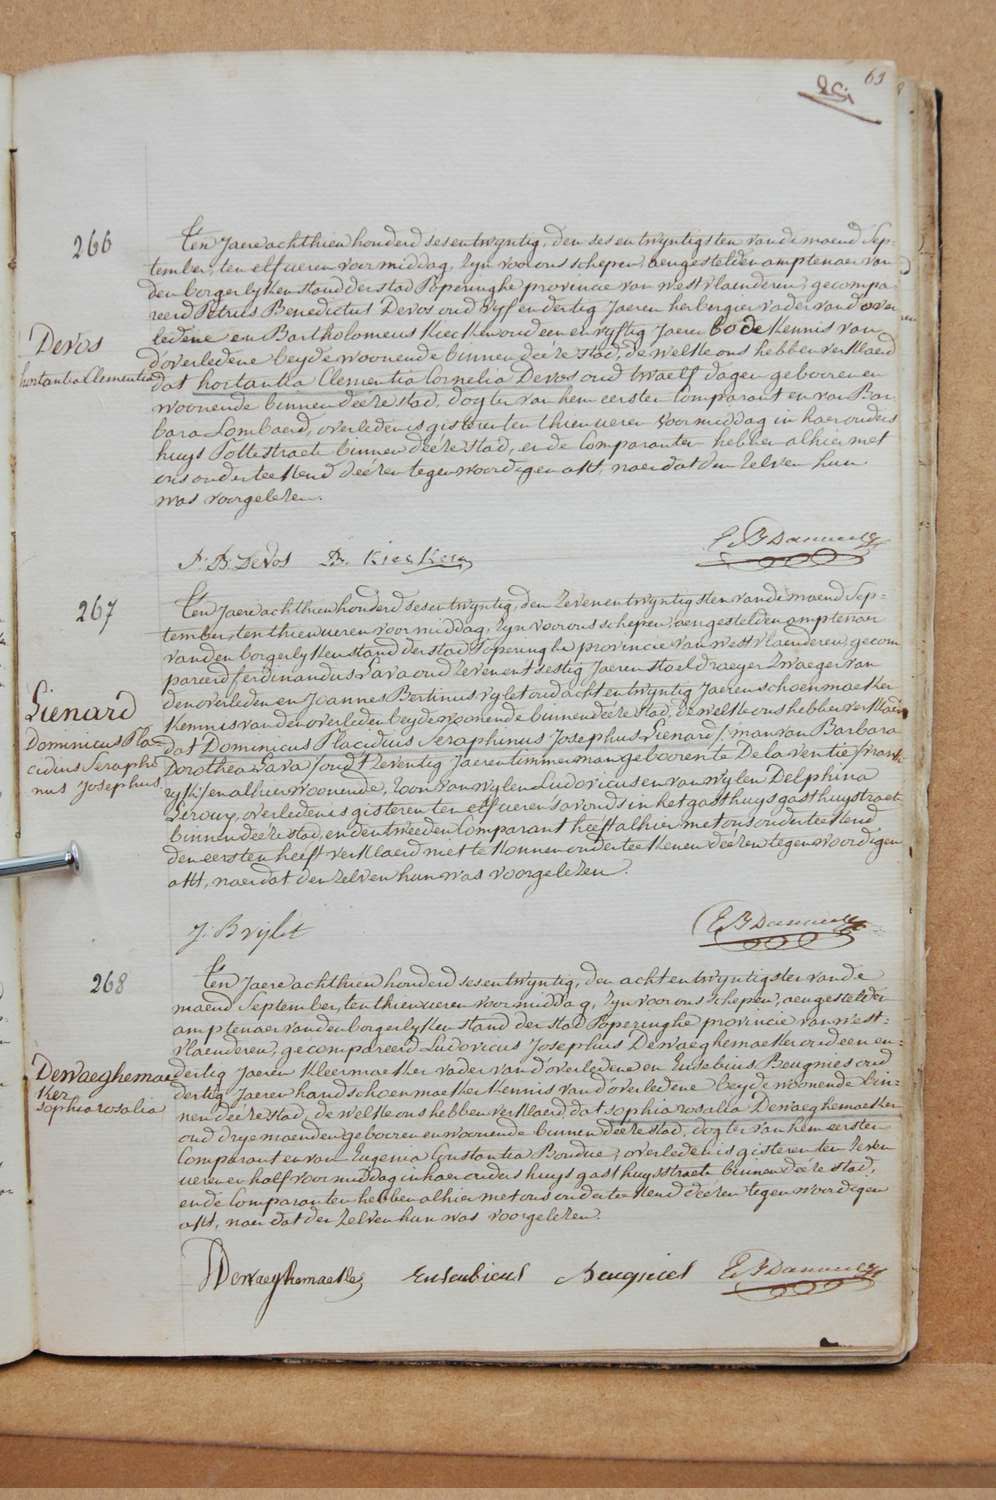 63
266
Devos
hortantia Clementia
Ten Jaere achthien honderd sesentwyntig, den sesentwyntigsten van de maend Sep-
tember, ten elf ueren voormiddag, Zyn voor ons schepen, aengestelden amptenaer van
den borgerlyken stand der stad Poperinghe provincie van westvlaenderen, gecompa-
reerd Petrus Benedictus Devos oud vyf en dertig Jaeren herbergier vader van d'over
ledene en Bartholomeus Kiecken oud een en vyftig Jaeren bode Kennis van
d'overledene beyde woonende binnen deéze stad, de welke ons hebben verklaerd
dat hortantia Clementia Cornelia Devos oud twaelf dagen gebooren en
woonende binnen deéze stad, dogter van hem eersten Comparant en van Bar
bara Lombaerd, overleden is gisteren ten thien ueren voormiddag in haer ouders
huys Pottestraete binnen deéze stad, ende Comparanten hebben alhier met
ons onderteekend deézen tegenwoordigen akt, naer dat den zelven hun
was voorgelezen.
P. B. Devos B. Kiecken
267
Lienard
Dominicus Pla-
cidius Seraphi
nus Josephus
Ten Jaere achthien honderd sesentwyntig, den zevenentwyntigsten van de maend Sep-
tember, ten thien ueren voormiddag, Zyn voor ons schepen, aengestelden amptenaer
van den borgerlyken stand der stad Poperinghe provincie van westvlaenderen, gecom
pareerd ferdinandus Lava oud zevenentsestig Jaeren stoeldraeyer Zwaeger van
den overleden en Joannes Bertinus vylet oud acht entwyntig Jaeren schoenmaeker
Kennis van den overleden beyde woonende binnen deéze stad, de welke ons hebben verklaerd
dat Dominicus Placidius Seraphinus Josephus Lienard /:man van Barbara
Dorothea Lava/ oud tzeventig Jaeren timmerman gebooren te De la ventie /vrank
ryk/ en alhier woonende, Zoon van wylen Ludovicus en van wylen Delphina
Leroux, overleden is gisteren ten elf ueren s'avonds in het gasthuys gasthuystraete
binnen deéze stad, en den tweeden Comparant heeft alhier met ons onderteekend
den eersten heeft verklaerd niet te konnen onderteekenen deézen tegenwoordigen
akt, naer dat den zelven hun was voorgelezen.
J: B vylet
268
Dewaeghemae
Ker
sophia rosalia
Ten Jaere achthien honderd sesentwyntig, den acht entwyntigsten van de
maend September, ten thien ueren voormiddag, Zyn voor ons schepen, aengestelden
amptenaer van den borgerlyken stand der stad Poperinghe provincie van west-
vlaenderen, gecompareerd Ludovicus Josephus Dewaeghemaeker oud een en-
dertig Jaeren Kleermaeker vader van d'overledene en Eusebius Beugnies oud
dertig Jaeren handschoenmaeker Kennis van d'overledene beyde woonende bin-
nen deéze stad, de welke ons hebben verklaerd, dat sophia rosalia Dewaeghemaeker
oud drye maenden gebooren en woonende binnen deéze stad, dogter van hem eersten
Comparant en van Eugenia Constantia Boudue, overleden is gisteren ten zeven
ueren en half voormiddag in haer ouders huys gasthuysstraete binnen deéze stad,
ende Comparanten hebben alhier met ons onderteekend deézen tegenwoordigen
akt, naer dat den zelven hun was voorgelezen.
Dewaeghemaeker Eusebieus Beugnies